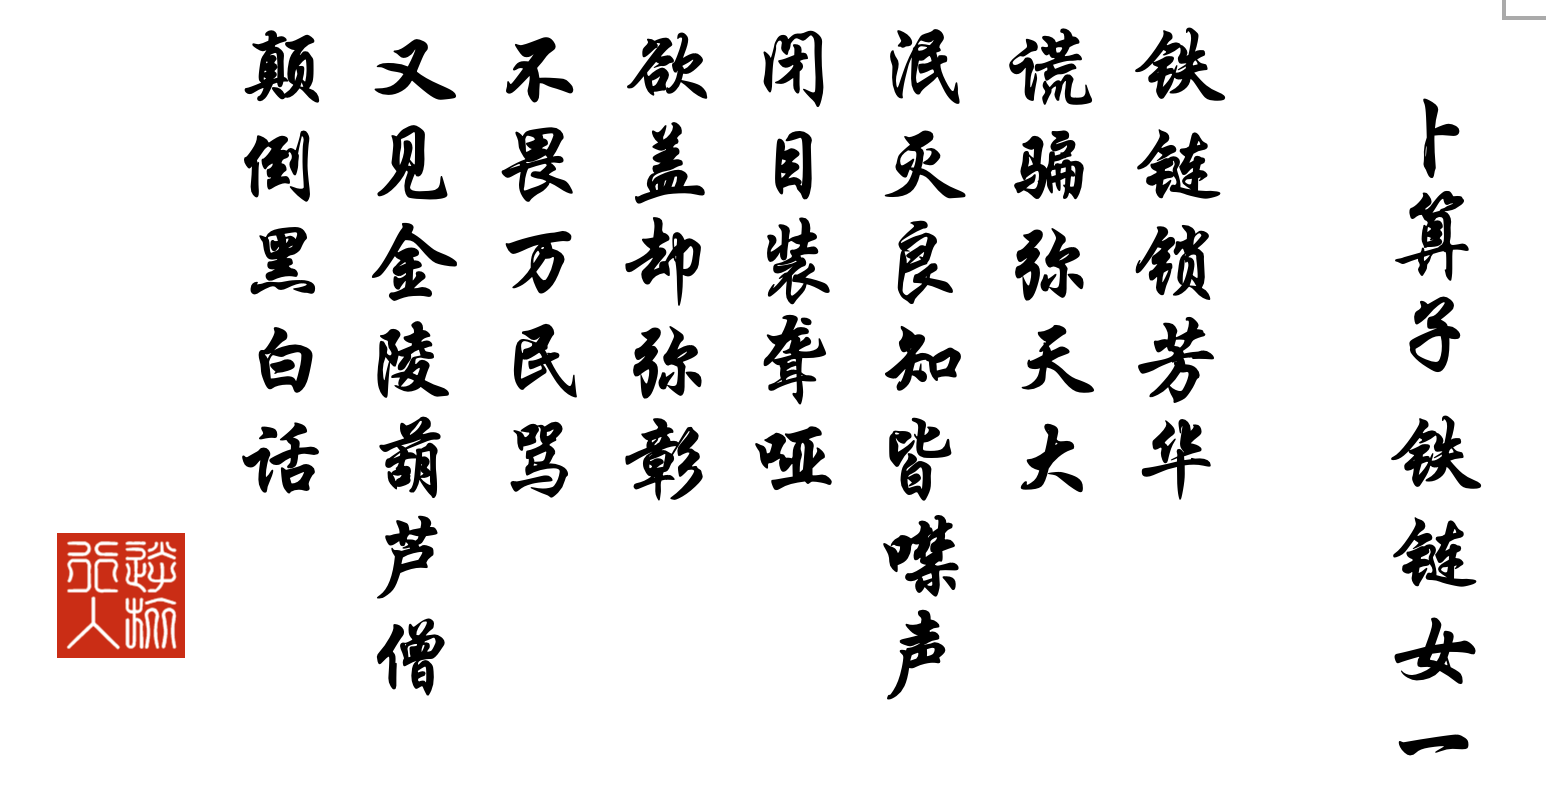 卜算子 铁链女一
铁链锁芳华
谎骗弥天大
泯灭良知皆噤声
闭目装聋哑
欲盖却弥彰
不畏万民骂
又见金陵葫芦僧
颠倒黑白话